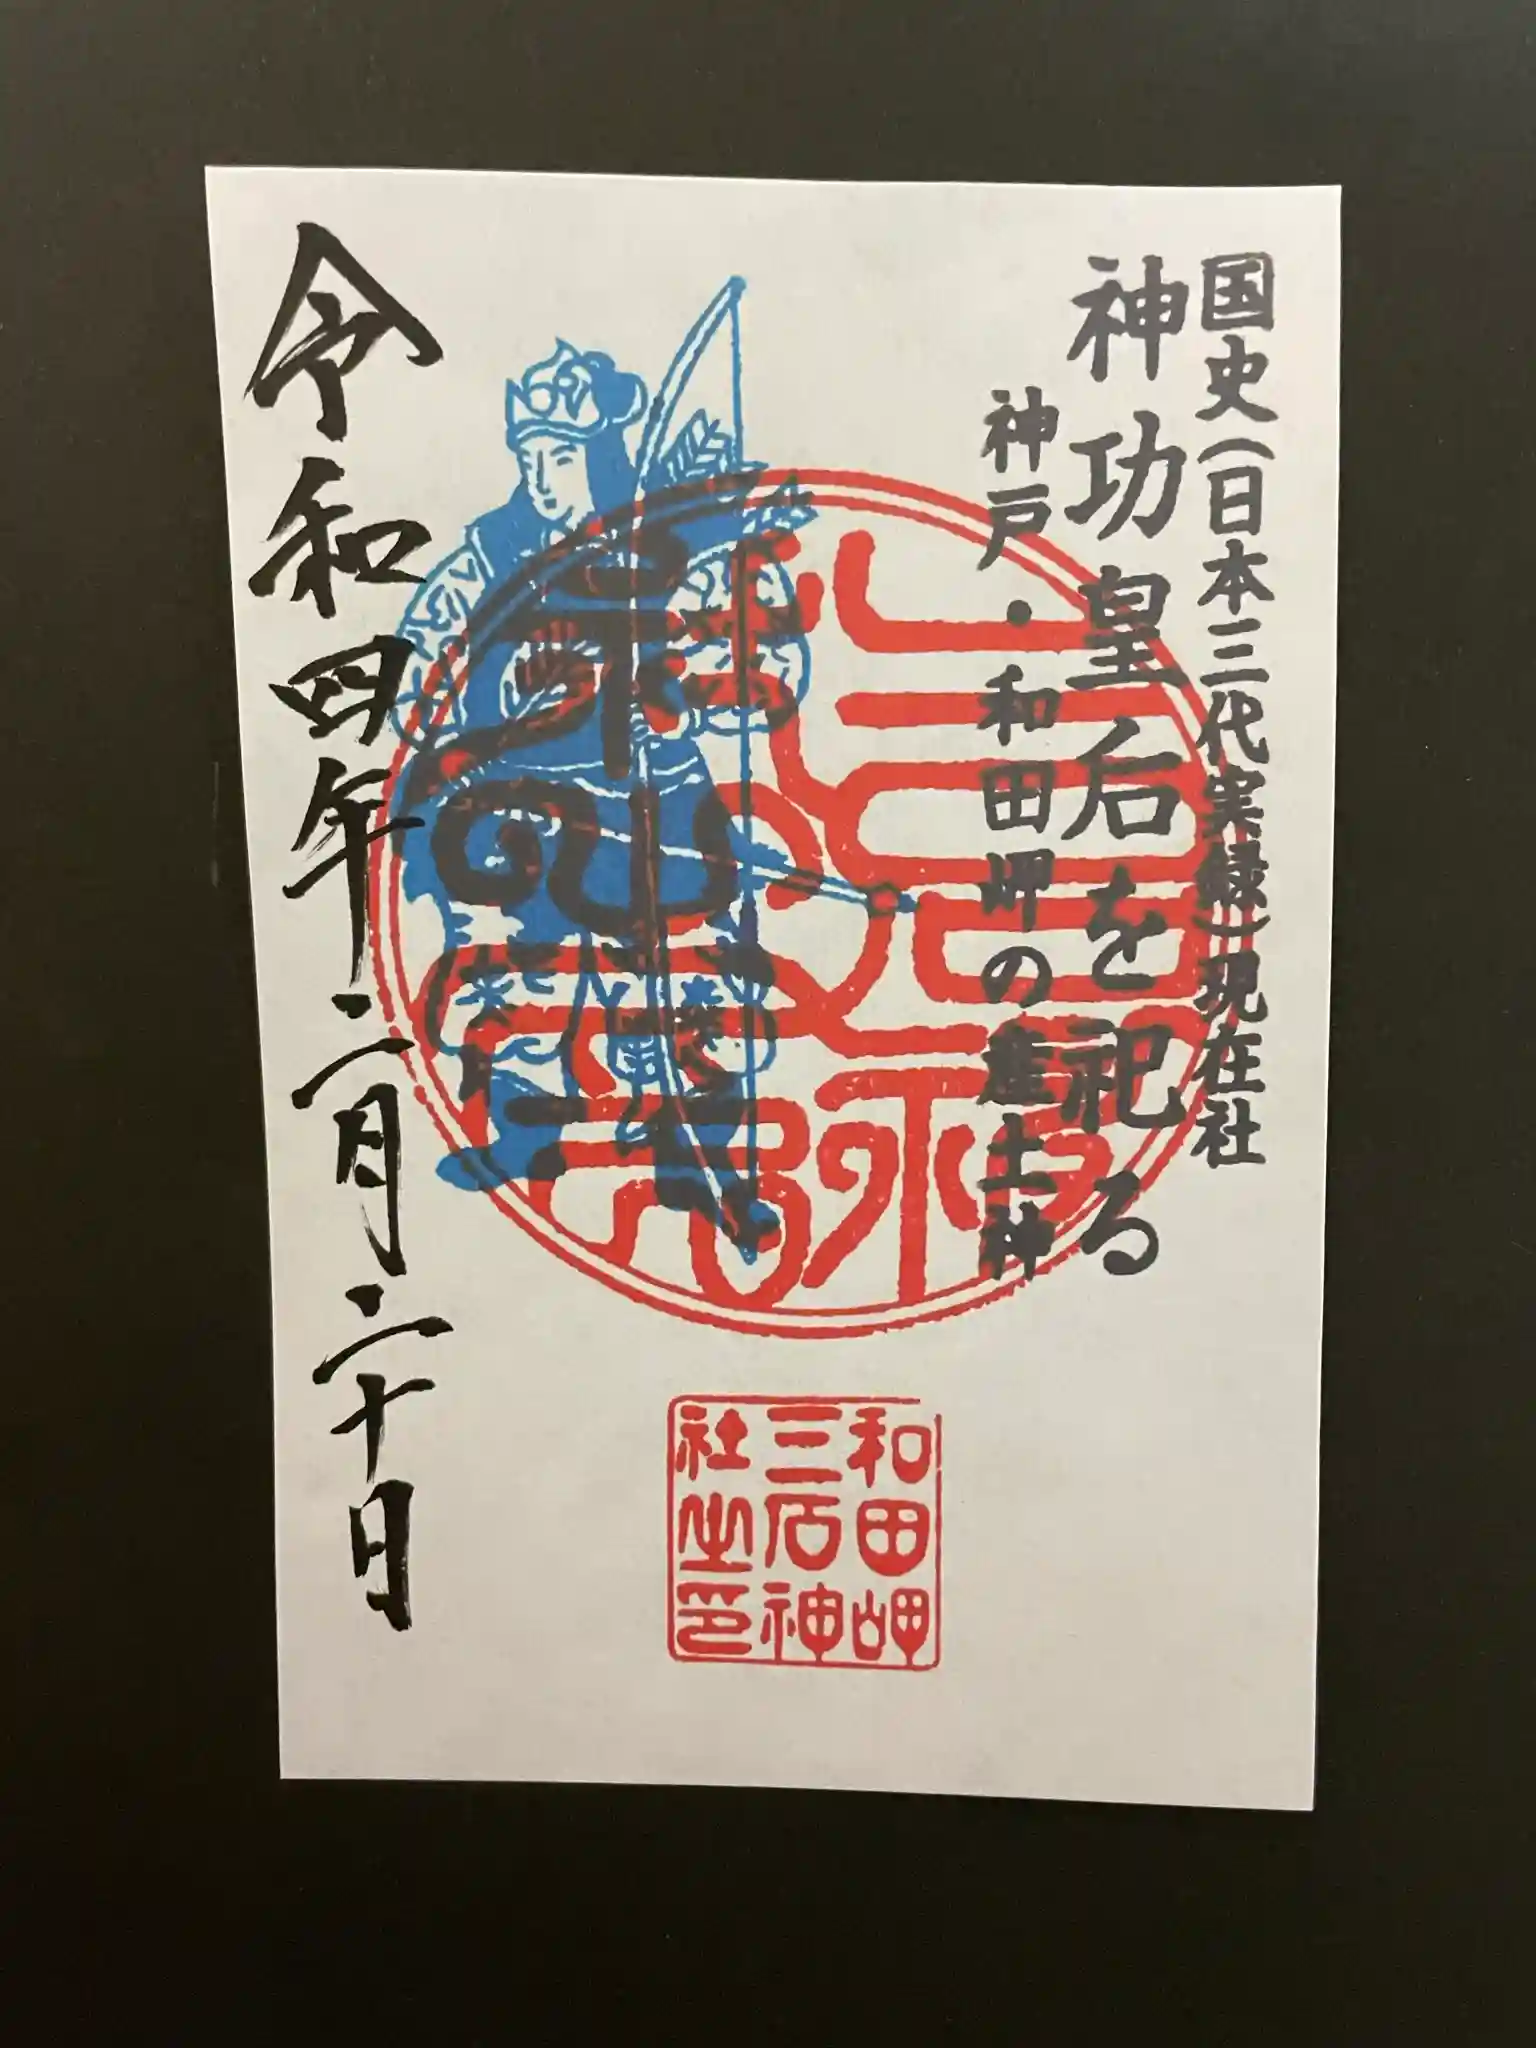 国史(日本三代実録)現在社
神功皇后を祀る
神戸・和田岬の産土神
令和四年二月二十日
和田岬
三石神
社之印